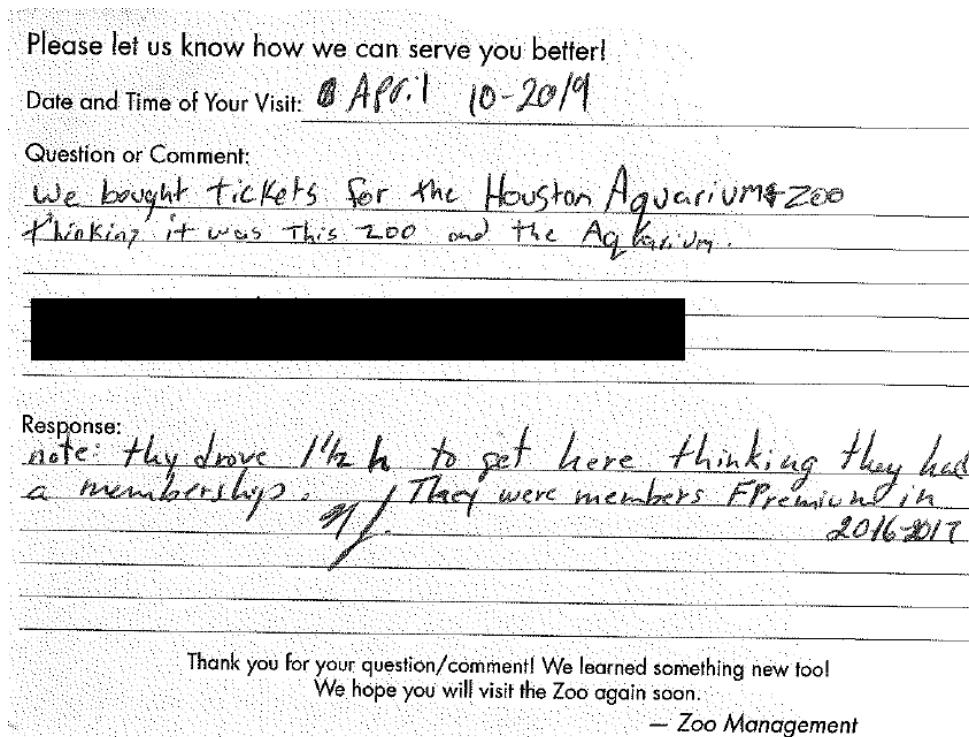 Please let us know how we can serve you better!
Date and Time of Your Visit: April 10-2019
Question or Comment:
We bought tickets for the Houston Aquarium & Zoo
thinking it was This zoo and the Aquarium.
Response:
note: thy drove 1 1/2 h to get here thinking they had
a membership. They were members FPremium in
2016-2017
Thank you for your question/comment! We learned something new too!
We hope you will visit the Zoo again soon.
— Zoo Management